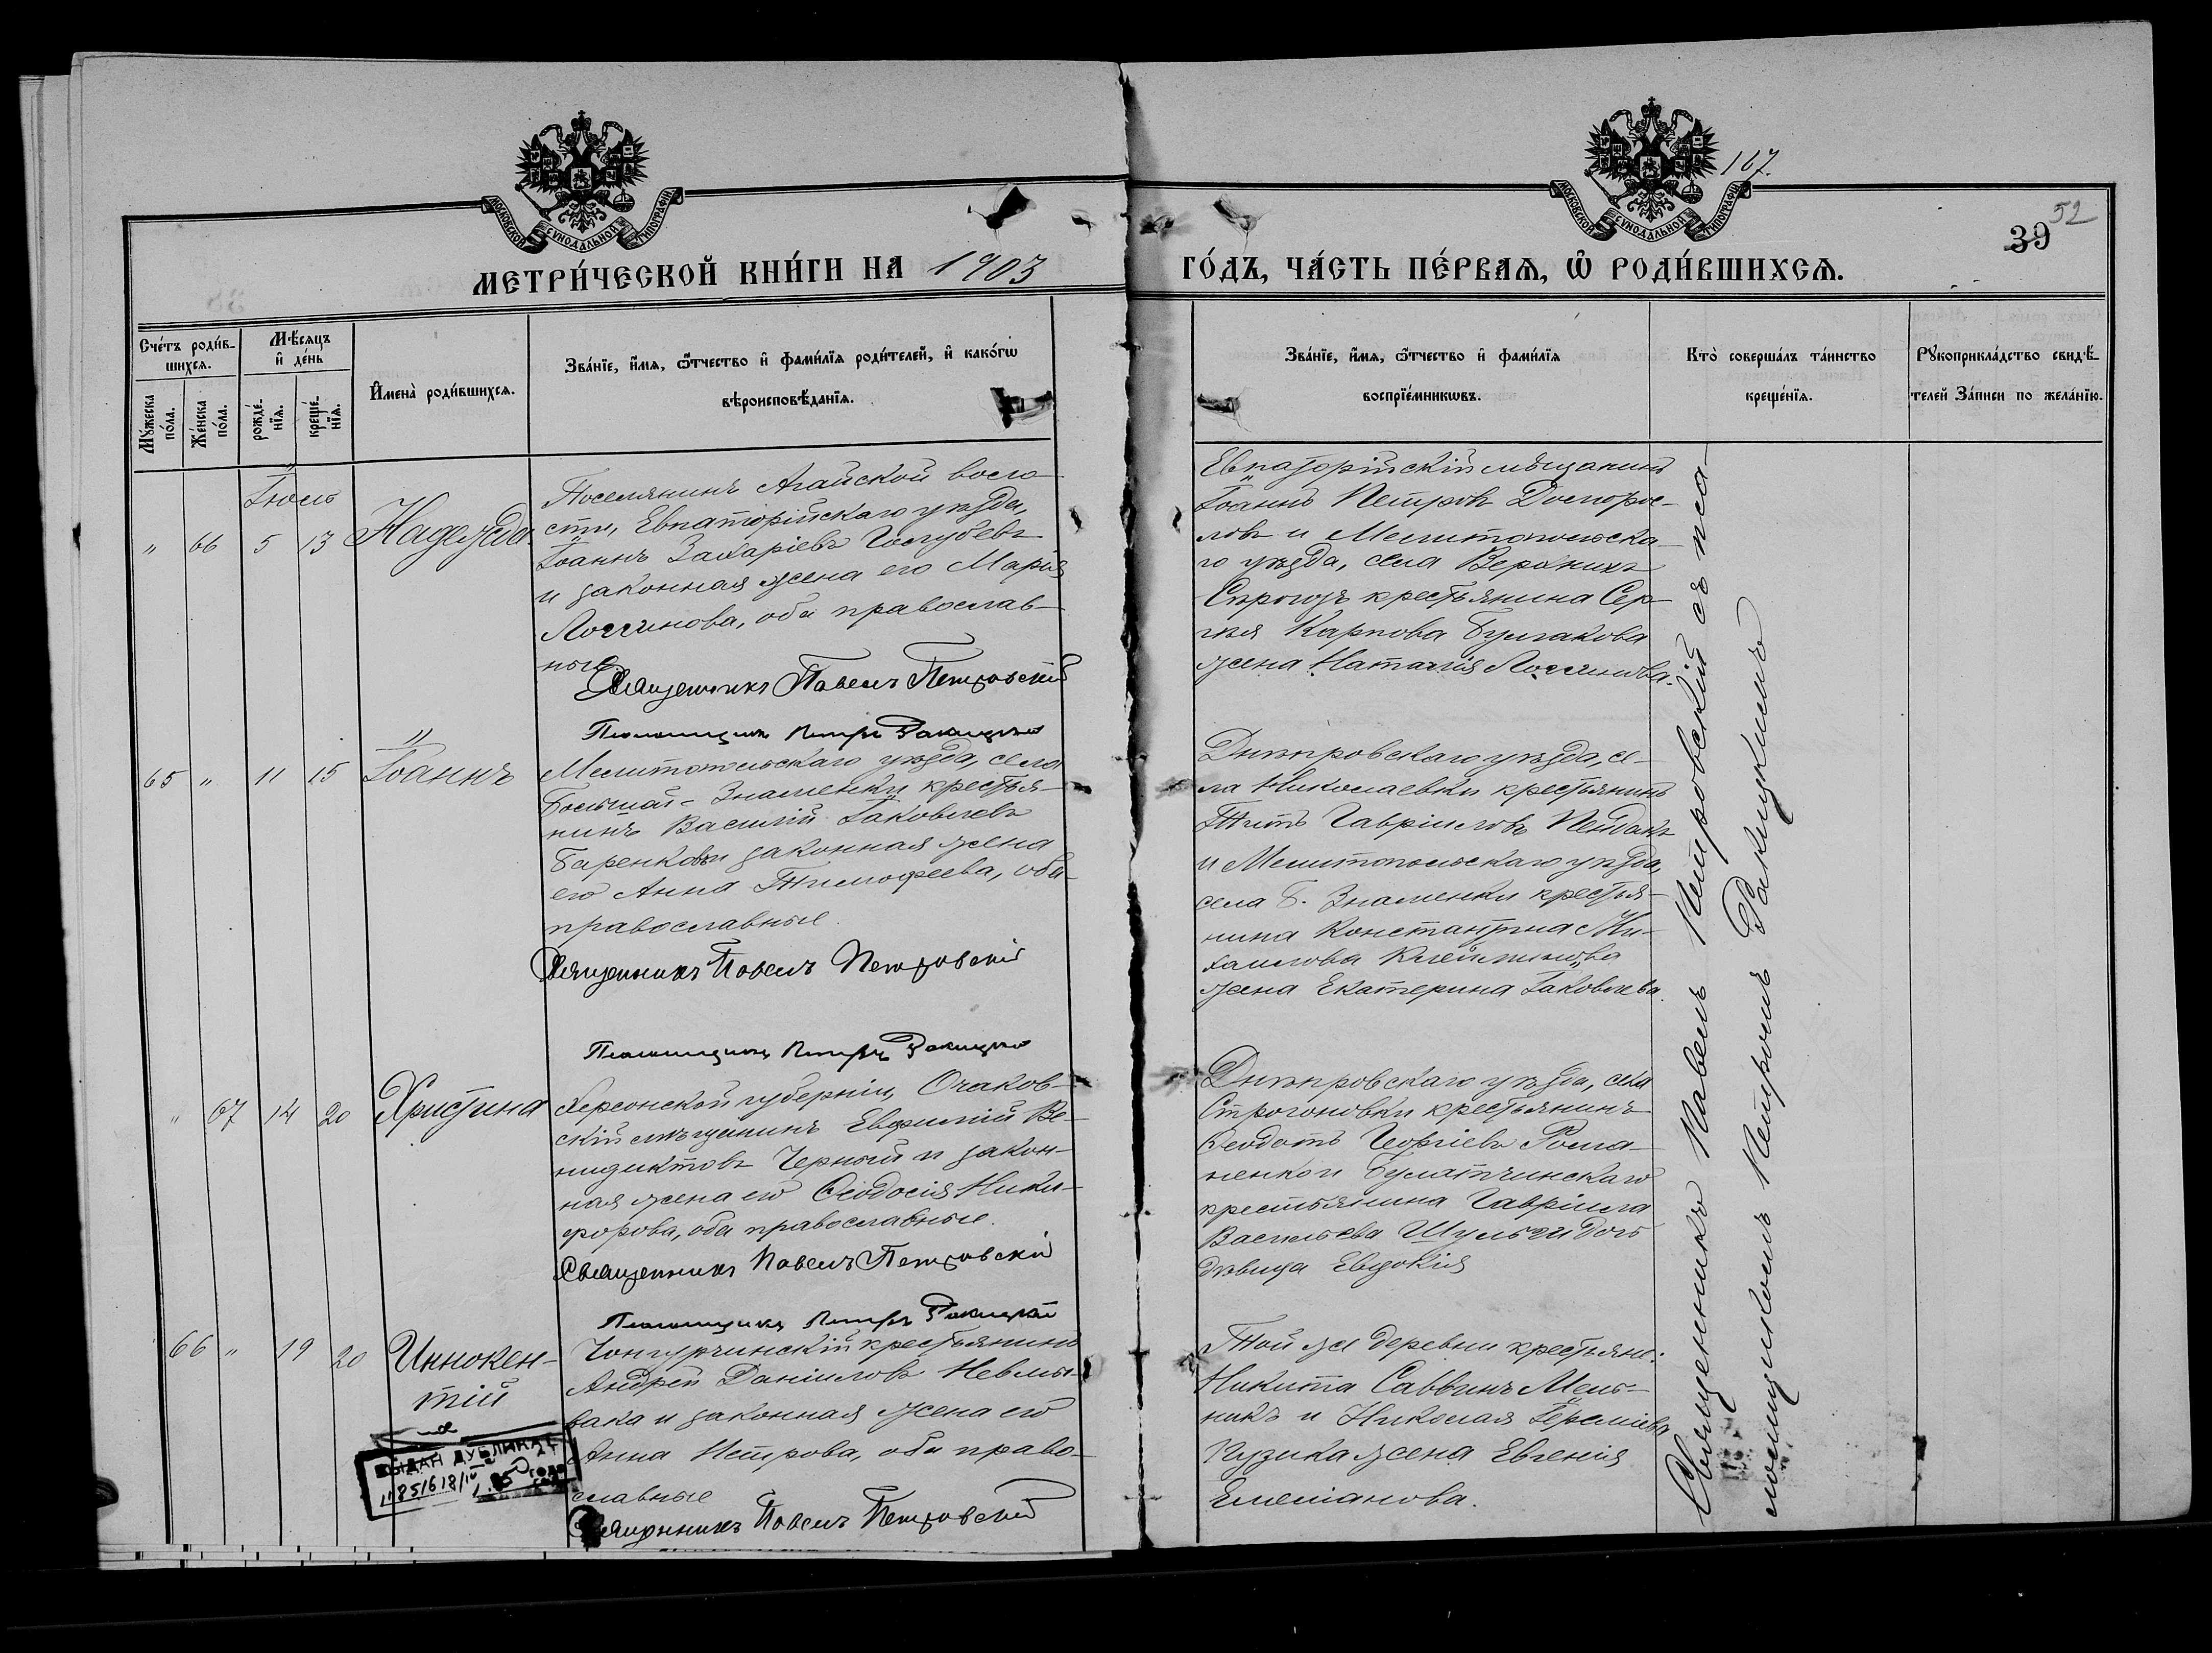 МОСКОВСКОЙ СѴНОДАЛЬНОЙ ТИПОГРАФІИ
МОСКОВСКОЙ СѴНОДАЛЬНОЙ ТИПОГРАФІИ
107.
39 52
МЕТРИ́ЧЕСКОЙ КНИ́ГИ НА 1903
ГО́ДЪ, ЧА́СТЬ ПЕ́РВАѦ, Ѽ РОДИ́ВШИХСѦ.
Сче́тъ роди́в-
шихсѧ.
Мꙋ́жеска по́ла.
Же́нска по́ла.
Мѣ́сѧцъ
и҆ де́нь
рожде́-
нїѧ.
креще́-
нїѧ.
И҆мена̀ роди́вшихсѧ.
Зва́нїе, и҆́мѧ, ѻ҆́тчество и҆ фами́лїѧ роди́телей, и҆ како́гѡ
вѣроисповѣ́данїѧ.
Зва́нїе, и҆́мѧ, ѻ҆́тчество и҆ фами́лїѧ
воспрїе́мникѡвъ.
Кто̀ соверша́лъ та́инство
креще́нїѧ.
Рꙋкоприкла́дство свидѣ́-
телей За́писи по жела́нїю.
Іюль
" 66 5 13 Надежда.
Поселянинъ Агайской воло-
сти, Евпаторійскаго уѣзда,
Іоаннъ Захаріевъ Голубевъ
и законная жена его Марія
Логгинова, оба православ-
ные
Священникъ Павелъ Петровскій
Псаломщикъ Петръ Ракицкій
Евпаторійскій мѣщанинъ
Іоаннъ Петровъ
и Мелитопольска-
го уѣзда, села Верхнихъ
Сѣрогозъ крестьянина Сер-
гія Карпова Булгакова
жена Наталія Логгинова.
65 " 11 15 Іоаннъ
Мелитопольскаго уѣзда, села
Большой-Знаменки крестья-
нинъ Василій Іаковлевъ
законная жена
его Анна Тимофеева, оба
православные.
Священникъ Павелъ Петровскій
Псаломщикъ Петръ Ракицкій
Днѣпровскаго уѣзда, се-
ла Николаевки крестьянинъ
Титъ Гавріиловъ
и Мелитопольскаго уѣзда,
села Б. Знаменки крестья-
нина Константина Ми-
хаилова
жена Екатерина Іаковлева.
" 67 14 20 Христина
Херсонской губерніи, Очаков-
скій мѣщанинъ Евфимій Ве-
недиктовъ Черный и закон-
ная жена его Ѳеодосія Ники-
форова, оба православные.
Священникъ Павелъ Петровскій
Псаломщикъ Петръ Ракицкій
Днѣпровскаго уѣзда, села
Строгоновки крестьянинъ
Ѳеодотъ Георгіевъ Рома-
ненко и Булатчинскаго
крестьянина Гавріила
Васильева Шульги дочь
дѣвица Евдокія
66 " 19 20 Иннокен-
тій
Чонгурчинскій крестьянинъ
Андрей Даніиловъ Невмы-
вака и законная жена его
Анна Петрова, оба право-
славные
Священникъ Павелъ Петровскій
Той же деревни крестьяне:
Никита Саввинъ Мель-
никъ и Николая Іереміева
Кузика жена Евгенія
Емеліанова.
ВЫДАН ДУБЛИКАТ
Священникъ Павелъ Петровскій съ пса-
ломщикомъ Петромъ Ракицкимъ